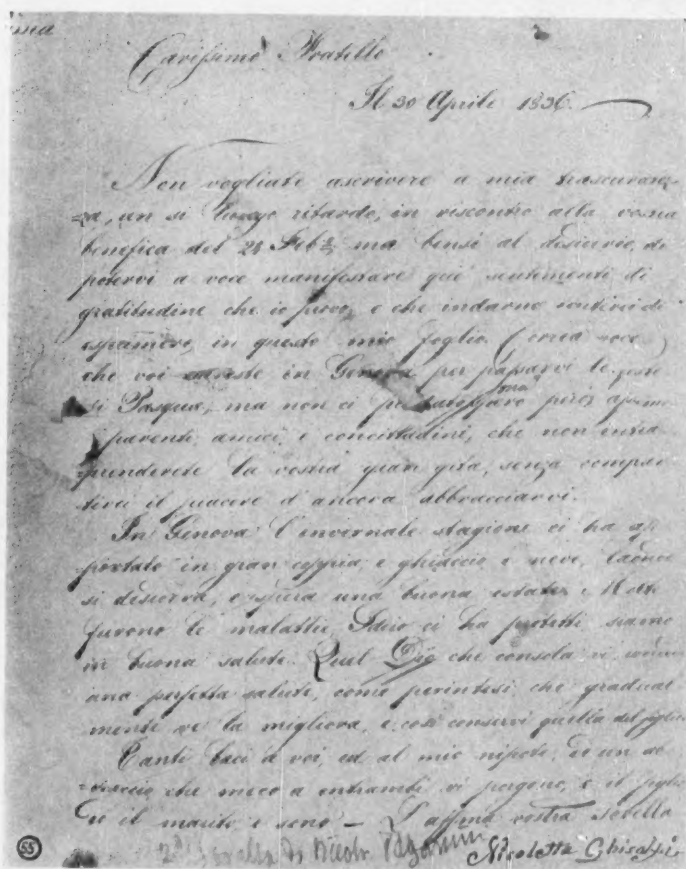 ma
Carissimo Fratello
Il 30 Aprile 1836.
Non vogliate ascrivere a mia trascuran=
=za, un si lungo ritardo, in riscontro alla vostra
benefica del 24 Feb ma bensi al desiderio, di
potervi a voce manifestare que' sentimenti di
gratitudine che io provo, e che indarno
esprimere, in questo mio foglio. Correa voce
che voi sareste in Genova per passarvi le feste
di Pasqua, ma non ci però
parenti, amici, e concittadini, che non intra=
prenderete la vostra gran gita, senza compar=
tirci il piacere d'ancora abbracciarvi.
In Genova l'invernale stagione ci ha ap=
portato in gran coppia, e ghiaccio e neve,
si una buona estate, e Molte
furono le malattie, Iddio ci ha protetti siamo
in buona salute. Quel Dio che consola vi
una perfetta salute, come perintesi, che gradual=
mente ve la migliora, e così conservi quella del figlio
Tanti baci a voi, ed al mio nipote, ed un ab=
=braccio che meco a entrambi vi porgono, e il figlio
e il marito e sono — L'affma vostra Sorella
Nicoletta Ghisolfi
2da Sorella di Nicolò Paganini
55